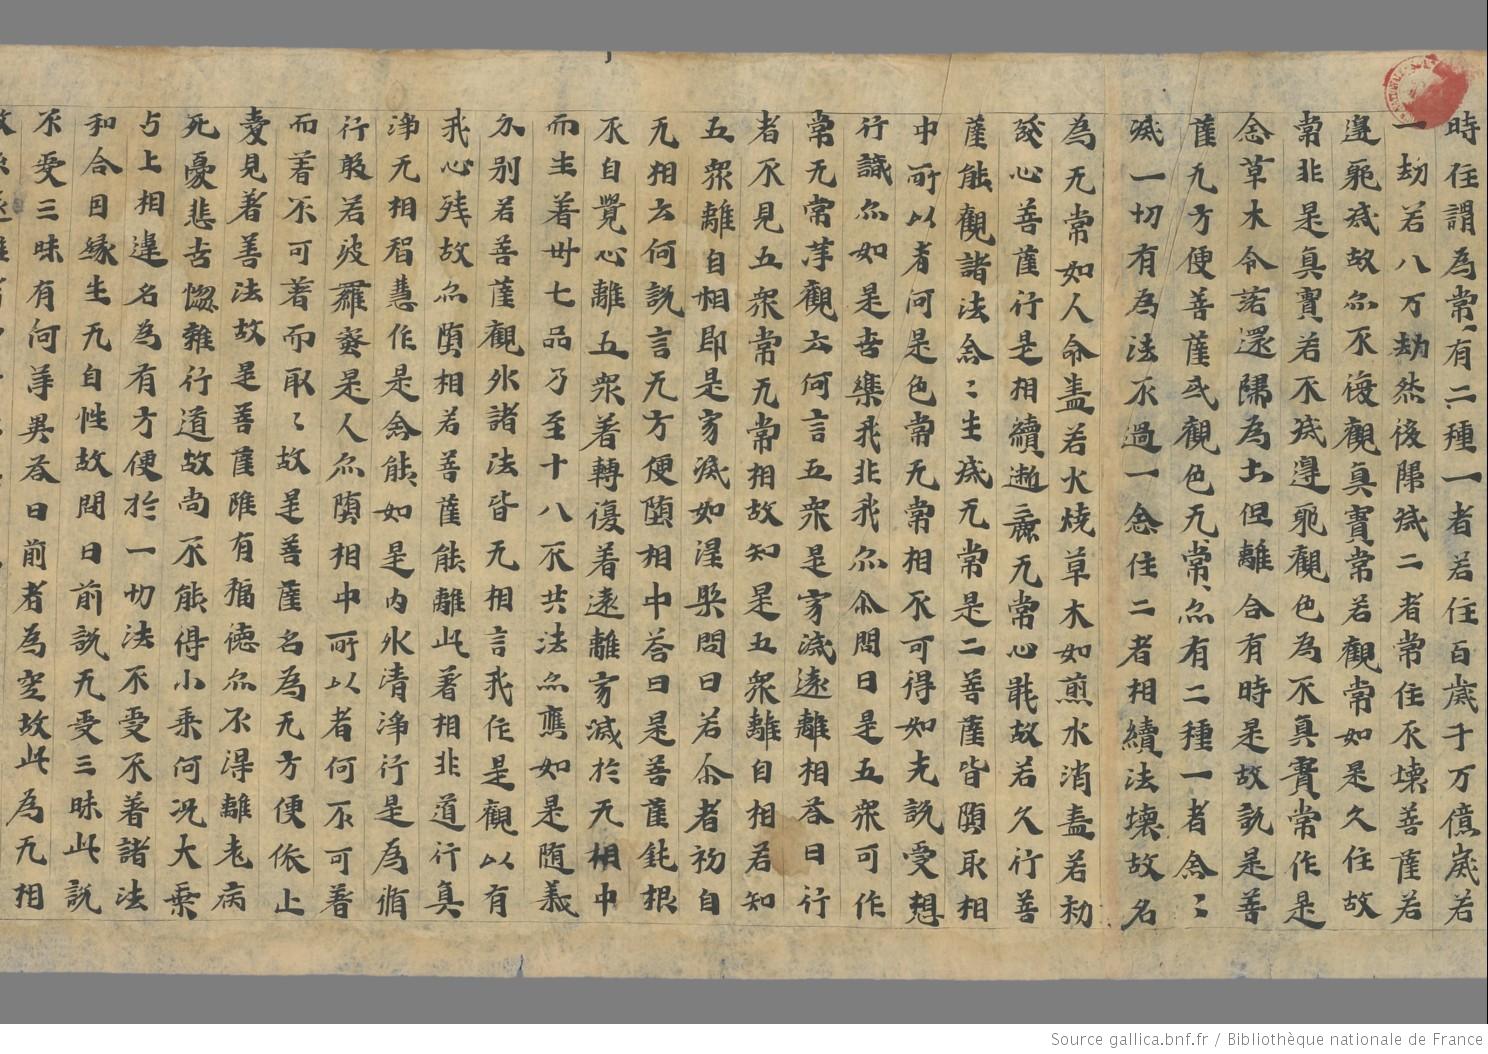 時住謂為常有二種一者若住百歲千万億歲若
一劫若八万劫然後歸滅二者常住不壞菩薩若
邊耶滅故亦不復觀真實常若觀常如是久住故
常非是真實若不滅邊耶觀色為不真實常作是
念草木令諾還歸為土但離合有時是故說是菩
薩无方便菩薩或觀色无常亦有二種一者念ミ
滅一切有為法不過一念住二者相續法壞故名
為无常如人命盡若火燒草木如煎水消盡若初
發心菩薩行是相續麁无常心耽故若久行菩
薩能觀諸法念ミ生滅无常是二菩薩皆墮取相
中所以者何是色常无常相不可得如先說受想
行識亦如是苦樂我非我亦尒問曰是五眾可作
常无常等觀云何言五眾是寂滅遠離相答曰行
者不見五眾常无常相故知是五眾離自相若知
五眾離自相即是寂滅如涅槃問曰若尒者初自
无相云何說言无方便墮相中答曰是菩薩鈍根
不自覺心離五眾著轉復著遠離寂滅於无相中
而生著卅七品乃至十八不共法亦應如是隨義
分別若菩薩觀外諸法皆无相言我作是觀以有
我心殘故亦墮相若菩薩能離此著相非道行真
淨无相智慧作是念能如是內外清淨行是為脩
行般若波羅蜜是人亦墮相中所以者何不可著
而著不可著而取ミ故是菩薩名為无方便依止
愛見著善法故是菩薩雖有福德亦不得離老病
死憂悲苦惱雜行道故尚不能得小乘何況大乘
与上相違名為有方便於一切法不受不著諸法
和合因緣生无自性故問曰前說无受三昧此說
不受三昧有何等異答曰前者為空故此為无相
Source gallica.bnf.fr / Bibliothèque nationale de France